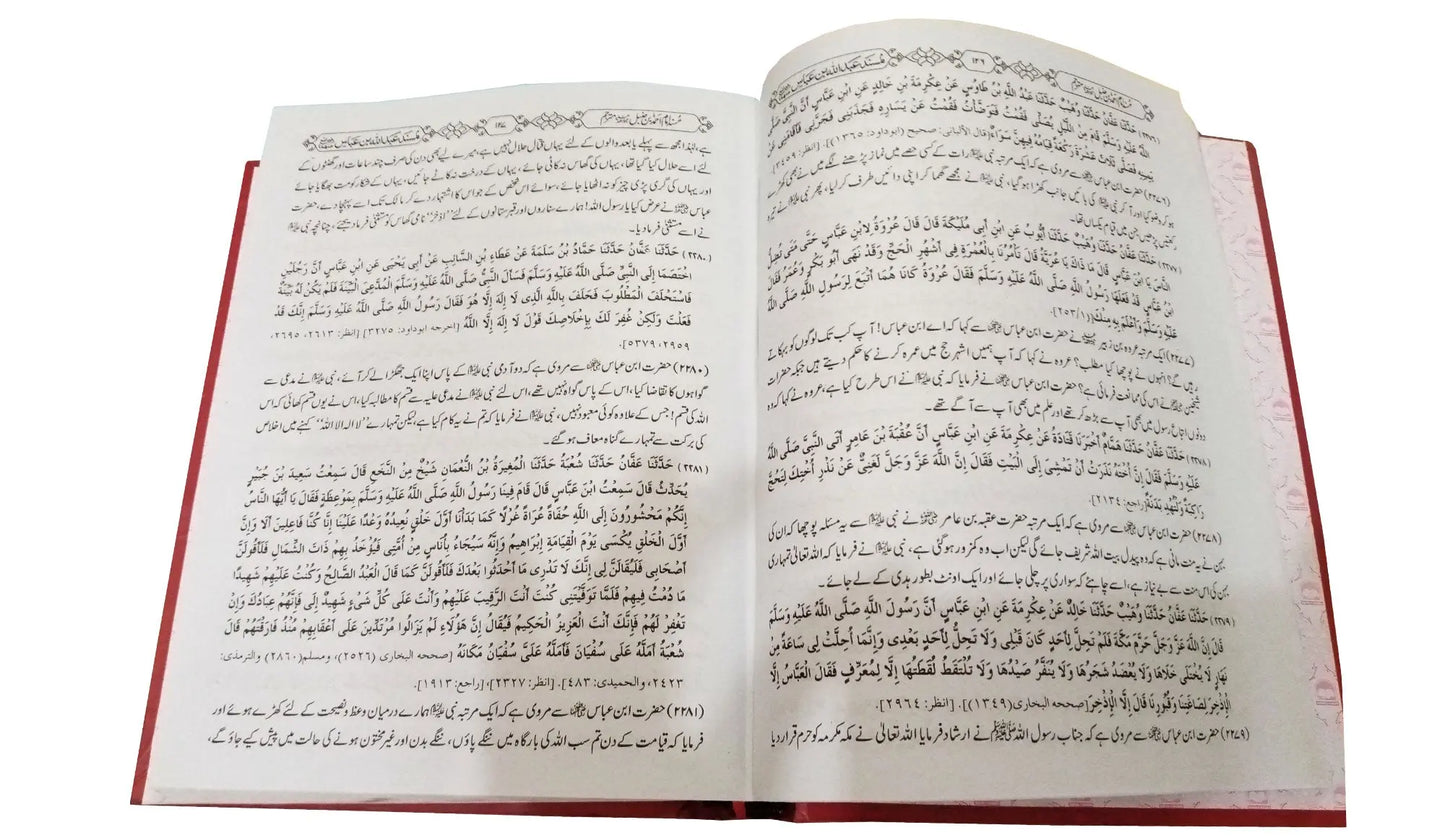 مُسند امام احمد بن حنبل مترجم ۱۳۶ مُسند عبد اللہ بن عباس
(۲۲۷۶) حَدَّثَنَا عَفَّانُ حَدَّثَنَا وُهَيْبٌ حَدَّثَنَا عَبْدُ اللَّهِ بْنُ طَاوُسٍ عَنْ عِكْرِمَةَ بْنِ خَالِدٍ عَنِ ابْنِ عَبَّاسٍ أَنَّ النَّبِيَّ صَلَّى
اللَّهُ عَلَيْهِ وَسَلَّمَ قَامَ مِنَ اللَّيْلِ يُصَلِّي فَقُمْتُ فَتَوَضَّأْتُ فَقُمْتُ عَنْ يَسَارِهِ فَجَذَبَنِي فَجَرَّنِي فَأَقَامَنِي عَنْ
يَمِينِهِ فَصَلَّى ثَلَاثَ عَشْرَةَ رَكْعَةً قِيَامُهُ فِيهِنَّ سَوَاءٌ [قال الألباني: صحيح (ابوداود: ۱۳۶۵)]. [انظر: ۳۴۵۹].
(۲۲۷۶) حضرت ابن عباس ؓ سے مروی ہے کہ ایک مرتبہ نبی ﷺ رات کے کسی حصے میں نماز پڑھنے لگے میں نے بھی کھڑے
ہو کر وضو کیا اور آ کر نبی ﷺ کی بائیں جانب کھڑا ہو گیا، نبی ﷺ نے مجھے گھما کر اپنی دائیں طرف کر لیا، پھر نبی ﷺ نے تیرہ
رکعتیں پڑھیں جن میں قیام یکساں تھا۔
(۲۲۷۷) حَدَّثَنَا عَفَّانُ حَدَّثَنَا وُهَيْبٌ حَدَّثَنَا أَيُّوبُ عَنِ ابْنِ أَبِي مُلَيْكَةَ قَالَ قَالَ عُرْوَةُ لِابْنِ عَبَّاسٍ حَتَّى مَتَى تُضِلُّ
النَّاسَ يَا ابْنَ عَبَّاسٍ قَالَ مَا ذَاكَ يَا عُرَيَّةُ قَالَ تَأْمُرُنَا بِالْعُمْرَةِ فِي أَشْهُرِ الْحَجِّ وَقَدْ نَهَى أَبُو بَكْرٍ وَعُمَرُ فَقَالَ
ابْنُ عَبَّاسٍ قَدْ فَعَلَهَا رَسُولُ اللَّهِ صَلَّى اللَّهُ عَلَيْهِ وَسَلَّمَ فَقَالَ عُرْوَةُ كَانَا هُمَا أَتْبَعَ لِرَسُولِ اللَّهِ صَلَّى اللَّهُ
عَلَيْهِ وَسَلَّمَ وَأَعْلَمَ بِهِ مِنْكَ [۲۵۳/۱].
(۲۲۷۷) ایک مرتبہ عروہ بن زبیر نے حضرت ابن عباس ؓ سے کہا کہ اے ابن عباس! آپ کب تک لوگوں کو بہکاتے
رہیں گے؟ انہوں نے پوچھا کیا مطلب؟ عروہ نے کہا کہ آپ ہمیں اشہر حج میں عمرہ کرنے کا حکم دیتے ہیں جبکہ حضرات
شیخین ؓ نے اس کی ممانعت فرمائی ہے؟ حضرت ابن عباس ؓ نے فرمایا کہ نبی ﷺ نے اس طرح کیا ہے، عروہ نے کہا کہ وہ
دونوں اتباع رسول میں بھی آپ سے بڑھ کر تھے اور علم میں بھی آپ سے آگے تھے۔
(۲۲۷۸) حَدَّثَنَا عَفَّانُ حَدَّثَنَا هَمَّامٌ أَخْبَرَنَا قَتَادَةُ عَنْ عِكْرِمَةَ عَنِ ابْنِ عَبَّاسٍ أَنَّ عُقْبَةَ بْنَ عَامِرٍ أَتَى النَّبِيَّ صَلَّى اللَّهُ
عَلَيْهِ وَسَلَّمَ فَقَالَ إِنَّ أُخْتَهُ نَذَرَتْ أَنْ تَمْشِيَ إِلَى الْبَيْتِ فَقَالَ إِنَّ اللَّهَ عَزَّ وَجَلَّ لَغَنِيٌّ عَنْ نَذْرِ أُخْتِكَ لِتَحُجَّ
رَاكِبَةً وَلْتُهْدِ بَدَنَةً [راجع: ۲۱۳۴].
(۲۲۷۸) حضرت ابن عباس ؓ سے مروی ہے کہ ایک مرتبہ حضرت عقبہ بن عامر ؓ نے نبی ﷺ سے یہ مسئلہ پوچھا کہ ان کی
بہن نے یہ منت مانی ہے کہ وہ پیدل بیت اللہ شریف جائے گی لیکن اب وہ کمزور ہو گئی ہے، نبی ﷺ نے فرمایا کہ اللہ تعالیٰ تمہاری
بہن کی اس منت سے بے نیاز ہے، اسے چاہئے کہ سواری پر چلی جائے اور ایک اونٹ بطور ہدی کے لے جائے۔
(۲۲۷۹) حَدَّثَنَا عَفَّانُ حَدَّثَنَا وُهَيْبٌ حَدَّثَنَا خَالِدٌ عَنْ عِكْرِمَةَ عَنِ ابْنِ عَبَّاسٍ أَنَّ رَسُولَ اللَّهِ صَلَّى اللَّهُ عَلَيْهِ وَسَلَّمَ
قَالَ إِنَّ اللَّهَ عَزَّ وَجَلَّ حَرَّمَ مَكَّةَ فَلَمْ تَحِلَّ لِأَحَدٍ كَانَ قَبْلِي وَلَا تَحِلُّ لِأَحَدٍ بَعْدِي وَإِنَّمَا أُحِلَّتْ لِي سَاعَةً مِنْ
نَهَارٍ لَا يُخْتَلَى خَلَاهَا وَلَا يُعْضَدُ شَجَرُهَا وَلَا يُنَفَّرُ صَيْدُهَا وَلَا تُلْتَقَطُ لُقَطَتُهَا إِلَّا لِمُعَرِّفٍ فَقَالَ الْعَبَّاسُ إِلَّا
الْإِذْخِرَ لِصَاغَتِنَا وَقُبُورِنَا قَالَ إِلَّا الْإِذْخِرَ [صححه البخاری (۱۳۴۹)]. [انظر: ۲۹۶۴].
(۲۲۷۹) حضرت ابن عباس ؓ سے مروی ہے کہ جناب رسول اللہ ﷺ نے ارشاد فرمایا اللہ تعالیٰ نے مکہ مکرمہ کو حرم قرار دیا
مُسند امام احمد بن حنبل مترجم ۱۳۷ مُسند عبد اللہ بن عباس
ہے، لہٰذا مجھ سے پہلے یا بعد والوں کے لئے یہاں قتال حلال نہیں ہے، میرے لیے بھی دن کی صرف چند ساعات اور گھنٹوں کے
لئے اسے حلال کیا گیا تھا، یہاں کی گھاس نہ کاٹی جائے، یہاں کے درخت نہ کاٹے جائیں، یہاں کے شکار کو مت بھگایا جائے
اور یہاں کی گری پڑی چیز کو نہ اٹھایا جائے، سوائے اس شخص کے جو اس کا اشتہار دے کر مالک تک اسے پہنچا دے، حضرت
عباس ؓ نے عرض کیا یا رسول اللہ! ہمارے سناروں اور قبرستانوں کے لئے "اذخر" نامی گھاس کو مستثنیٰ فرما دیجئے، چنانچہ نبی ﷺ
نے اسے مستثنیٰ فرما دیا۔
(۲۲۸۰) حَدَّثَنَا عَفَّانُ حَدَّثَنَا حَمَّادُ بْنُ سَلَمَةَ عَنْ عَطَاءِ بْنِ السَّائِبِ عَنْ أَبِي يَحْيَى عَنِ ابْنِ عَبَّاسٍ أَنَّ رَجُلَيْنِ
اخْتَصَمَا إِلَى النَّبِيِّ صَلَّى اللَّهُ عَلَيْهِ وَسَلَّمَ فَسَأَلَ النَّبِيُّ صَلَّى اللَّهُ عَلَيْهِ وَسَلَّمَ الْمُدَّعِيَ الْبَيِّنَةَ فَلَمْ يَكُنْ لَهُ بَيِّنَةٌ
فَاسْتَحْلَفَ الْمَطْلُوبَ فَحَلَفَ بِاللَّهِ الَّذِي لَا إِلَهَ إِلَّا هُوَ فَقَالَ رَسُولُ اللَّهِ صَلَّى اللَّهُ عَلَيْهِ وَسَلَّمَ إِنَّكَ قَدْ
فَعَلْتَ وَلَكِنْ غُفِرَ لَكَ بِإِخْلَاصِكَ قَوْلَ لَا إِلَهَ إِلَّا اللَّهُ [اخرجه ابوداود: ۳۲۷۵] [انظر: ۲۶۱۳، ۲۶۹۵،
۲۹۵۹، ۵۳۷۹].
(۲۲۸۰) حضرت ابن عباس ؓ سے مروی ہے کہ دو آدمی نبی ﷺ کے پاس اپنا ایک جھگڑا لے کر آئے، نبی ﷺ نے مدعی سے
گواہوں کا تقاضا کیا، اس کے پاس گواہ نہیں تھے، اس لئے نبی ﷺ نے مدعی علیہ سے قسم کا مطالبہ کیا، اس نے یوں قسم کھائی کہ اس
اللہ کی قسم! جس کے علاوہ کوئی معبود نہیں، نبی ﷺ نے فرمایا کہ تم نے یہ کام کیا ہے، لیکن تمہارے "لا الہ الا اللہ" کہنے میں اخلاص
کی برکت سے تمہارے گناہ معاف ہو گئے۔
(۲۲۸۱) حَدَّثَنَا عَفَّانُ حَدَّثَنَا شُعْبَةُ حَدَّثَنَا الْمُغِيرَةُ بْنُ النُّعْمَانِ شَيْخٌ مِنَ النَّخَعِ قَالَ سَمِعْتُ سَعِيدَ بْنَ جُبَيْرٍ
يُحَدِّثُ قَالَ سَمِعْتُ ابْنَ عَبَّاسٍ قَالَ قَامَ فِينَا رَسُولُ اللَّهِ صَلَّى اللَّهُ عَلَيْهِ وَسَلَّمَ بِمَوْعِظَةٍ فَقَالَ يَا أَيُّهَا النَّاسُ
إِنَّكُمْ مَحْشُورُونَ إِلَى اللَّهِ حُفَاةً عُرَاةً غُرْلًا كَمَا بَدَأْنَا أَوَّلَ خَلْقٍ نُعِيدُهُ وَعْدًا عَلَيْنَا إِنَّا كُنَّا فَاعِلِينَ أَلَا وَإِنَّ
أَوَّلَ الْخَلْقِ يُكْسَى يَوْمَ الْقِيَامَةِ إِبْرَاهِيمُ وَإِنَّهُ سَيُجَاءُ بِأُنَاسٍ مِنْ أُمَّتِي فَيُؤْخَذُ بِهِمْ ذَاتَ الشِّمَالِ فَلَأَقُولَنَّ
أَصْحَابِي فَلَيُقَالَنَّ لِي إِنَّكَ لَا تَدْرِي مَا أَحْدَثُوا بَعْدَكَ فَلَأَقُولَنَّ كَمَا قَالَ الْعَبْدُ الصَّالِحُ وَكُنْتُ عَلَيْهِمْ شَهِيدًا
مَا دُمْتُ فِيهِمْ فَلَمَّا تَوَفَّيْتَنِي كُنْتَ أَنْتَ الرَّقِيبَ عَلَيْهِمْ وَأَنْتَ عَلَى كُلِّ شَيْءٍ شَهِيدٌ إِلَى فَإِنَّهُمْ عِبَادُكَ وَإِنْ
تَغْفِرْ لَهُمْ فَإِنَّكَ أَنْتَ الْعَزِيزُ الْحَكِيمُ فَيُقَالُ إِنَّ هَؤُلَاءِ لَمْ يَزَالُوا مُرْتَدِّينَ عَلَى أَعْقَابِهِمْ مُنْذُ فَارَقْتَهُمْ قَالَ
شُعْبَةُ أَمَلَّهُ عَلَى سُفْيَانَ فَأَمَلَّهُ عَلَيَّ سُفْيَانُ مَكَانَهُ [صححه البخاری (۲۵۲۶)، ومسلم (۲۸۶۰) والترمذی:
۲۴۲۳، والحمیدی: ۴۸۳]. [انظر: ۲۳۲۷]، [راجع: ۱۹۱۳].
(۲۲۸۱) حضرت ابن عباس ؓ سے مروی ہے کہ ایک مرتبہ نبی ﷺ ہمارے درمیان وعظ و نصیحت کے لئے کھڑے ہوئے اور
فرمایا کہ قیامت کے دن تم سب اللہ کی بارگاہ میں ننگے پاؤں، ننگے بدن اور غیر مختون ہونے کی حالت میں پیش کیے جاؤ گے،